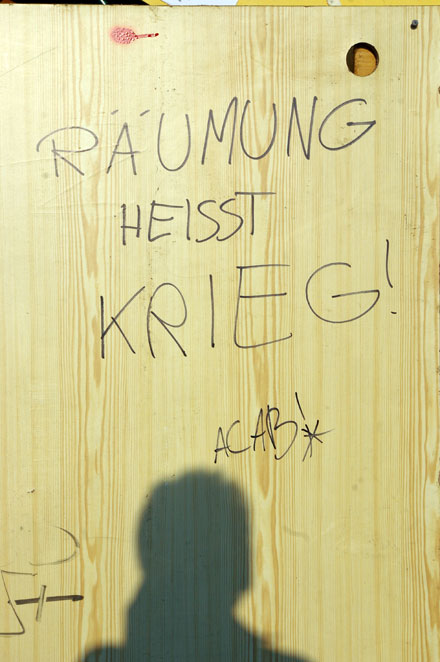 RÄUMUNG
HEISST
KRIEG!
ACAB!*